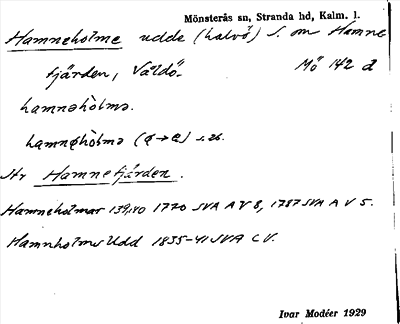 Mönsterås sn, Stranda hd, Kalm. l.
Hamneholme udde (halvö) S. om Hamne
fjärden, Väldö. Mö 142 d
hamnəhòlmə.
hamnɵhòlmə (ɵ→ə) s. 26.
Jfr Hamnefjärden.
Hamneholmar 139,140 1770 SVA A V 8, 1787 SVA A V 5.
Hamnholms Udd 1835-41 SVA C V.
Ivar Modéer 1929